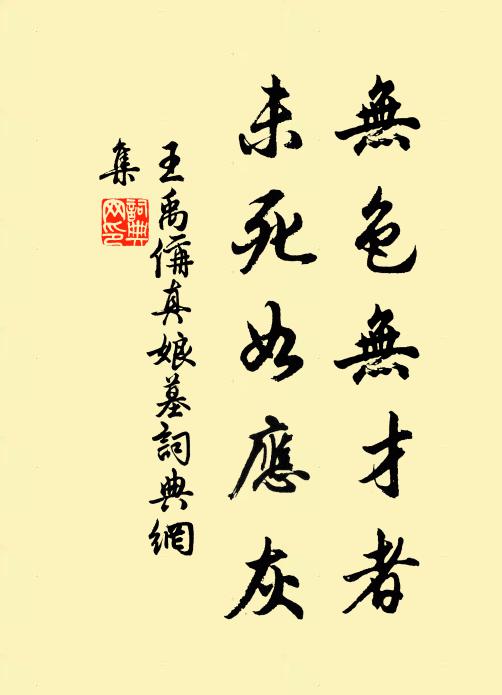 無色無才者
未死如應灰
王禹偁真娘墓詞典網
集
詞典網印